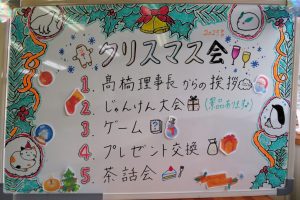 クリスマス会
1. 髙橋理事長からの挨拶
2. じゃんけん大会
3. ゲーム
4. プレゼント交換
5. 茶話会